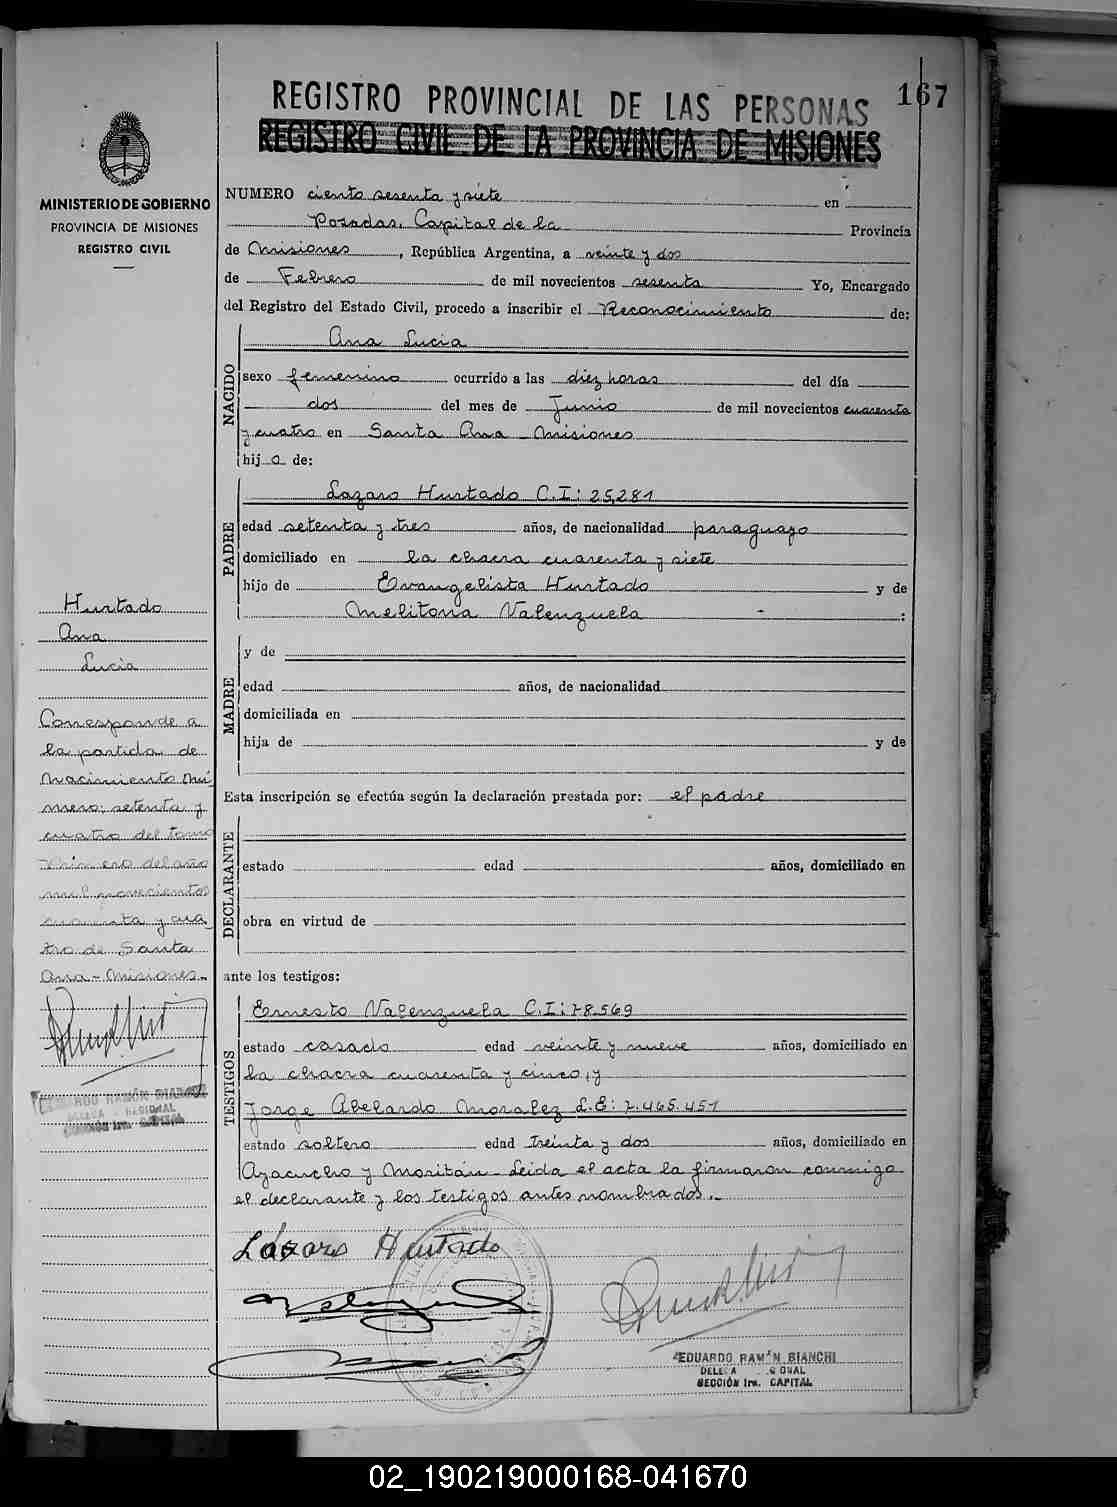 167
REGISTRO PROVINCIAL DE LAS PERSONAS
REGISTRO CIVIL DE LA PROVINCIA DE MISIONES
MINISTERIO DE GOBIERNO
PROVINCIA DE MISIONES
REGISTRO CIVIL
NUMERO ciento sesenta y siete en
Posadas, Capital de la Provincia
de Misiones, República Argentina, a veinte y dos
de Febrero de mil novecientos sesenta Yo, Encargado
del Registro del Estado Civil, procedo a inscribir el Reconocimiento de:
NACIDO
Ana Lucia
sexo femenino ocurrido a las diez horas del día
dos del mes de Junio de mil novecientos cuarenta
y cuatro en Santa Ana - Misiones
hija de:
PADRE
Lazaro Hurtado C.I: 25,281
edad setenta y tres años, de nacionalidad paraguayo
domiciliado en la chacra cuarenta y siete
hijo de Evangelista Hurtado y de
Melitona Valenzuela
MADRE
y de
edad años, de nacionalidad
domiciliada en
hija de y de
Esta inscripción se efectúa según la declaración prestada por: el padre
DECLARANTE
estado edad años, domiciliado en
obra en virtud de
ante los testigos:
TESTIGOS
Ernesto Valenzuela C.I: 78.569
estado casado edad veinte y nueve años, domiciliado en
la chacra cuarenta y cinco, y
Jorge Abelardo Moralez L.E: 7.465.451
estado soltero edad treinta y dos años, domiciliado en
Ayacucho y Moritán - Leida el acta la firmaron conmigo
el declarante y los testigos antes nombrados.-
Lázaro Hurtado
EDUARDO RAMÓN BIANCHI
SECCIÓN 1ra. CAPITAL
Hurtado
Ana
Lucia
Corresponde a
la partida de
Nacimiento nú
mero: setenta y
cuatro del tomo
Primero del año
mil novecientos
cuarenta y cua
tro de Santa
Ana - Misiones.-
EDUARDO RAMÓN BIANCHI
02_190219000168-041670